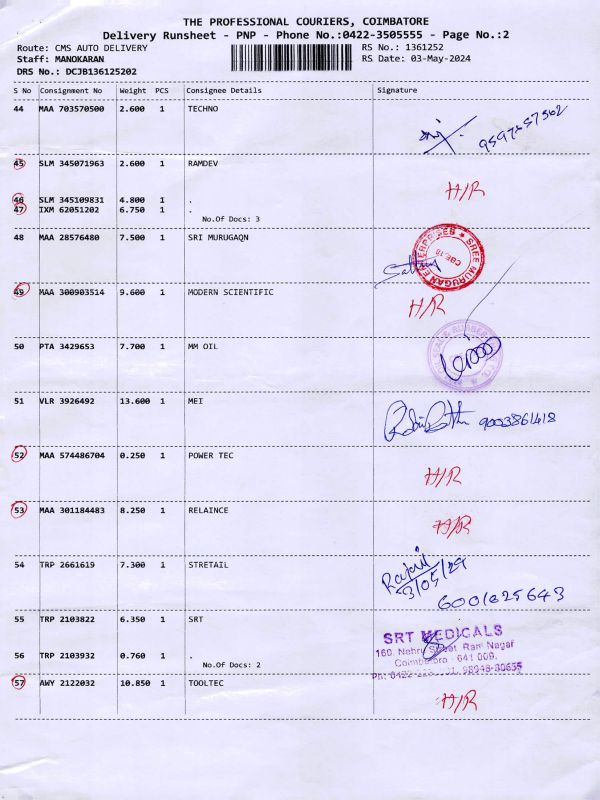 THE PROFESSIONAL COURIERS, COIMBATORE
Delivery Runsheet - PNP - Phone No.:0422-3505555 - Page No.:2
Route: CMS AUTO DELIVERY RS No.: 1361252
Staff: MANOKARAN RS Date: 03-May-2024
DRS No.: DCJB136125202
S No Consignment No Weight PCS Consignee Details Signature
44 MAA 703570500 2.600 1 TECHNO
45 SLM 345071963 2.600 1 RAMDEV
H/R
46 SLM 345109831 4.800 1 .
47 IXM 62051202 6.750 1 .
No.Of Docs: 3
48 MAA 28576480 7.500 1 SRI MURUGAQN
SREE MURUGAN ENTERPRISES
CBE-18
49 MAA 300903514 9.600 1 MODERN SCIENTIFIC
H/R
50 PTA 3429653 7.700 1 MM OIL
51 VLR 3926492 13.600 1 MEI
9003861418
52 MAA 574486704 0.250 1 POWER TEC
H/R
53 MAA 301184483 8.250 1 RELAINCE
H/R
54 TRP 2661619 7.300 1 STRETAIL
3/05/24
6001825643
55 TRP 2103822 6.350 1 SRT
SRT MEDICALS
160, Nehru Street, Ram Nagar
Coimbatore - 641 009.
56 TRP 2103932 0.760 1 .
No.Of Docs: 2
57 AWY 2122032 10.850 1 TOOLTEC
H/R